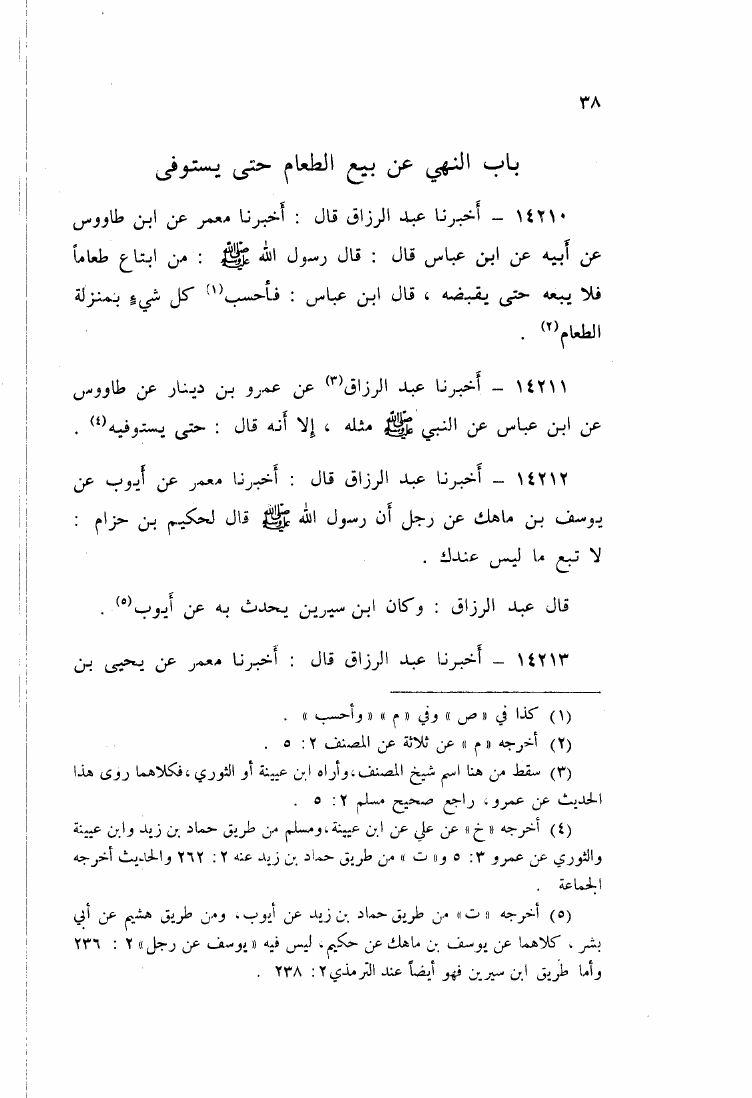 ٣٨
باب النهي عن بيع الطعام حتى يستوفى
١٤٢١٠ – أخبرنا عبد الرزاق قال : أخبرنا معمر عن ابن طاووس
عن أبيه عن ابن عباس قال : قال رسول الله ﷺ : من ابتاع طعاماً
فلا يبعه حتى يقبضه ، قال ابن عباس : فأحسب(١) كل شيءٍ بمنزلة
الطعام(٢) .
١٤٢١١ – أخبرنا عبد الرزاق(٣) عن عمرو بن دينار عن طاووس
عن ابن عباس عن النبي ﷺ مثله ، إلا أنه قال : حتى يستوفيه(٤) .
١٤٢١٢ – أخبرنا عبد الرزاق قال : أخبرنا معمر عن أيوب عن
يوسف بن ماهك عن رجل أن رسول الله ﷺ قال لحكيم بن حزام :
لا تبع ما ليس عندك .
قال عبد الرزاق : وكان ابن سيرين يحدث به عن أيوب(٥) .
١٤٢١٣ – أخبرنا عبد الرزاق قال : أخبرنا معمر عن يحيى بن
(١) كذا في «ص» وفي «م» «وأحسب» .
(٢) أخرجه «م» عن ثلاثة عن المصنف ٢: ٥ .
(٣) سقط من هنا اسم شيخ المصنف،وأراه ابن عيينة أو الثوري،فكلاهما روى هذا
الحديث عن عمرو، راجع صحيح مسلم ٢: ٥ .
(٤) أخرجه «خ» عن علي عن ابن عيينة،ومسلم من طريق حماد بن زيد وابن عيينة
والثوري عن عمرو ٣: ٥ و«ت» من طريق حماد بن زيد عنه ٢: ٢٦٢ والحديث أخرجه
الجماعة .
(٥) أخرجه «ت» من طريق حماد بن زيد عن أيوب، ومن طريق هشيم عن أبي
بشر، كلاهما عن يوسف بن ماهك عن حكيم، ليس فيه «يوسف عن رجل» ٢: ٢٣٦
وأما طريق ابن سيرين فهو أيضاً عند الترمذي٢: ٢٣٨ .